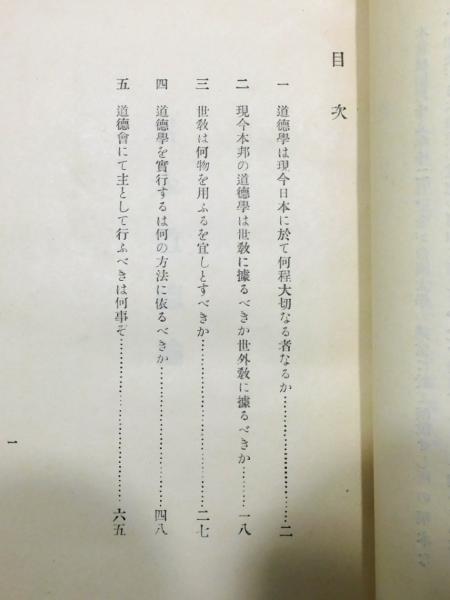 目次
一 道德學は現今日本に於て何程大切なる者なるか…………………………二
二 現今本邦の道德學は世敎に據るべきか世外敎に據るべきか………一八
三 世敎は何物を用ふるを宜しとすべきか…………………………二七
四 道德學を實行するは何の方法に依るべきか…………………………四八
五 道德會にて主として行ふべきは何事ぞ…………………………六五
一